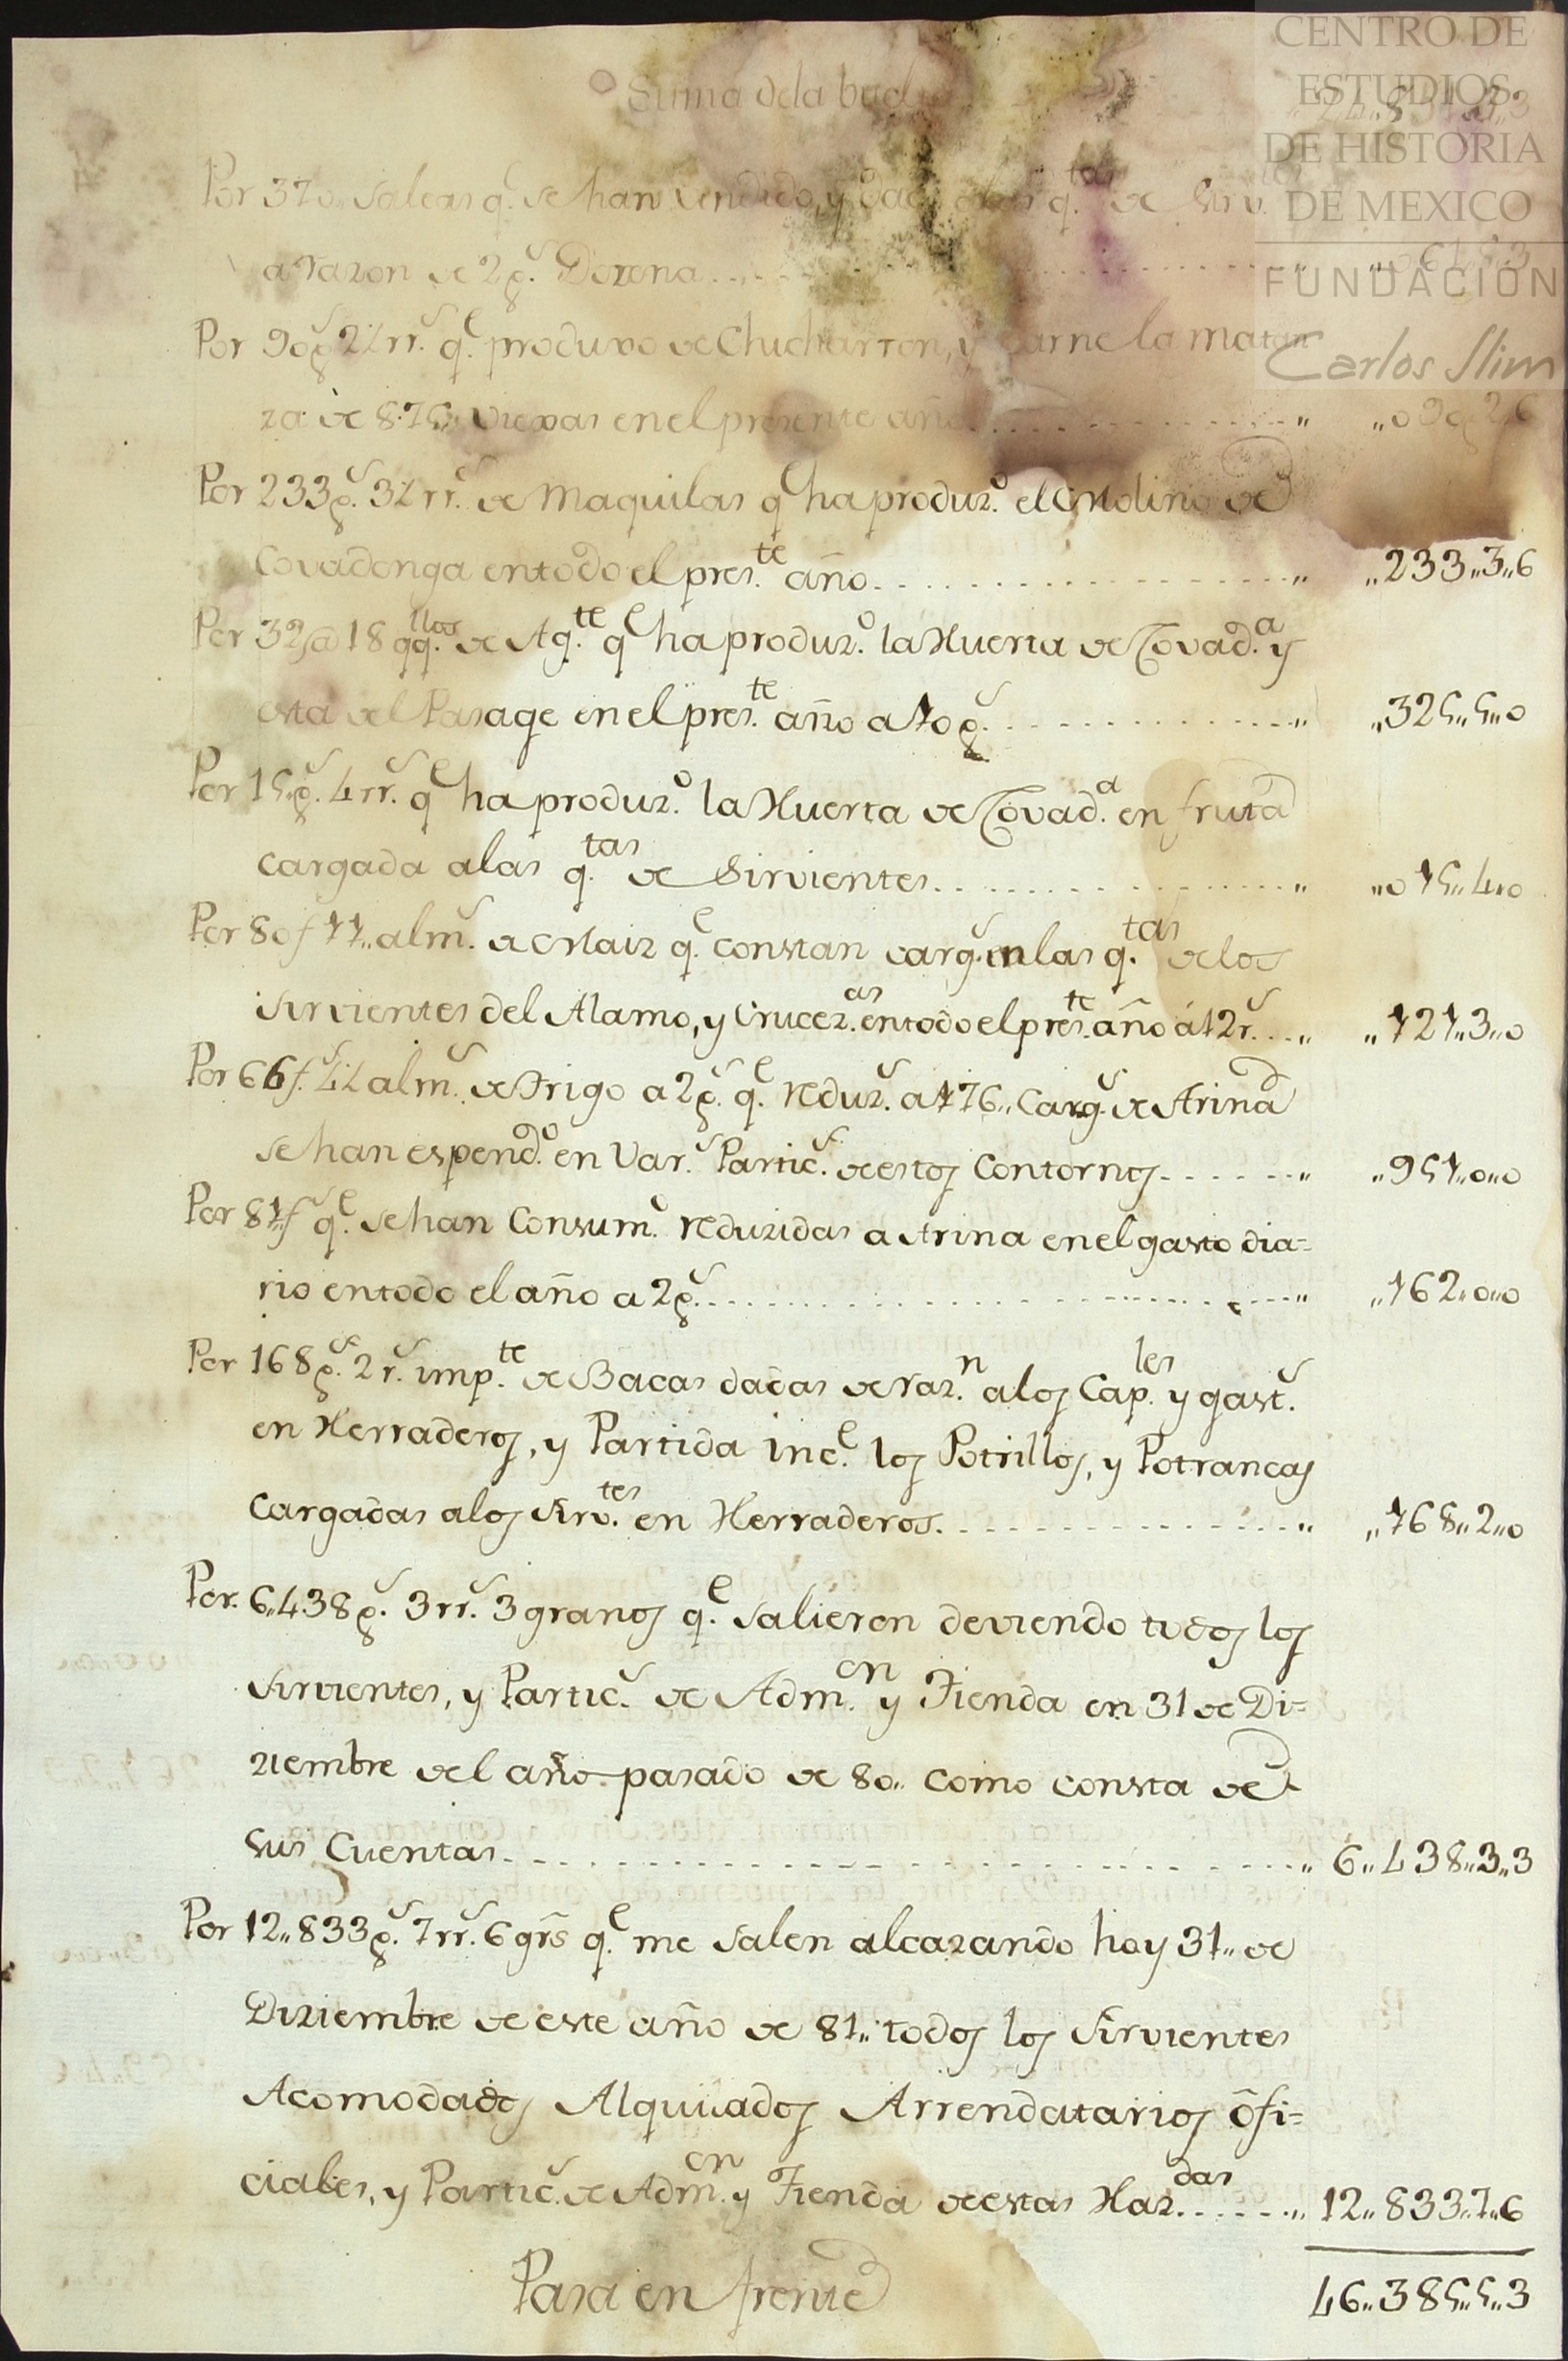 CENTRO DE
ESTUDIOS
DE HISTORIA
DE MEXICO
FUNDACIÓN
Carlos Slim
Suma dela buelta
Por 370.. Saleas q.e se han vendido, y q.tas de Sirv.
a razon de 2p.s Dozena
Por 90p.s 2½rr.s q.e produxo de Chicharron, y Carne la matan
za de 875,, viexas en el presente año ,, ,,090,,2,,6
Por 233p.s 3½rr.s de Maquilas q.e ha produz.o el Molino de
Covadonga en todo el pres.te año ,, ,,233,,3,,6
Por 32@18 qq.llos de Ag.te q.e ha produz.o la Huerta de Covad.a y
esta del Pasage en el pres.te año a 10p.s ,, ,,325,,5,,0
Por 15p.s 4rr.s q.e ha produz.o la Huerta de Covad.a en fruta
cargada a las q.tas de Sirvientes ,, ,,015,,4,,0
Por 80f 11,, alm.s de Maiz q.e constan carg.s en las q.tas de los
sirvientes del Alamo, y Cruces.as en todo el pres.te año á 12r.s ,, ,,121,,3,,0
Por 66f.s 4½ alm.s de Trigo a 2p.s q.e reduz.s a 176,, Carg.s de Arina
se han espend.do en Var.s Partic.s de estos Contornos ,, ,,951,,0,,0
Por 81,,f.s q.e se han Consum.o reduzidas a Arina en el gasto dia=
rio en todo el año a 2p.s ,, ,,162,,0,,0
Por 168p.s 2r.s imp.te de Bacas dadas de raz.n a los Cap.les y gast.s
en Herraderos, y Partida inc.e los Potrillos, y Potrancas
Cargadas a los Sirv.tes en Herraderos ,, ,,168,,2,,0
Por. 6,,438p.s 3rr.s 3 granos q.e salieron deviendo todos los
Sirvientes, y Partic.s de Adm.on y Tienda en 31 de Di=
ziembre del año pasado de 80,, como consta de
sus Cuentas ,, 6,,438,,3,,3
Por 12,,833p.s 7rr.s 6 grs q.e me salen alcazando hoy 31,, de
Diziembre de este año de 81,, todos los Sirvientes
Acomodados Alquilados Arrendatarios ofi=
ciales, y Partic.s de Adm.on y Tienda de estas Haz.das ,, 12,,833,,7,,6
Pasa en frente 46,,385,,5,,3